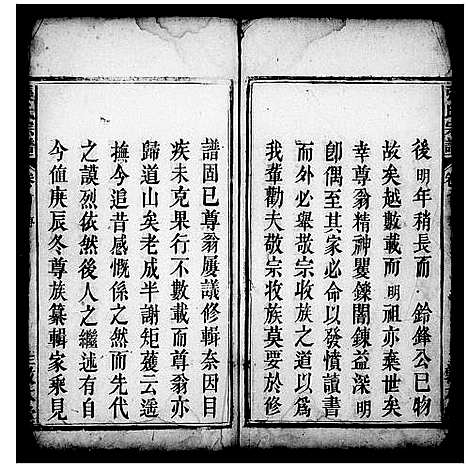 後明年稍長而 鈴鋒公已物
故矣越數載而明祖亦棄世矣
幸尊翁精神矍鑠閱鍊益深明
卽偶至其家必命以發憤讀書
而外必舉敬宗收族之道以爲
我輩勸夫敬宗收族莫要於修
譜固已尊翁屢議修輯奈因目
疾未克果行不數載而尊翁亦
歸道山矣老成半謝矩蒦云遥
撫今追昔感慨係之然而先代
之謨烈依然後人之繼述有自
今値庚辰冬尊族纂輯家乘見